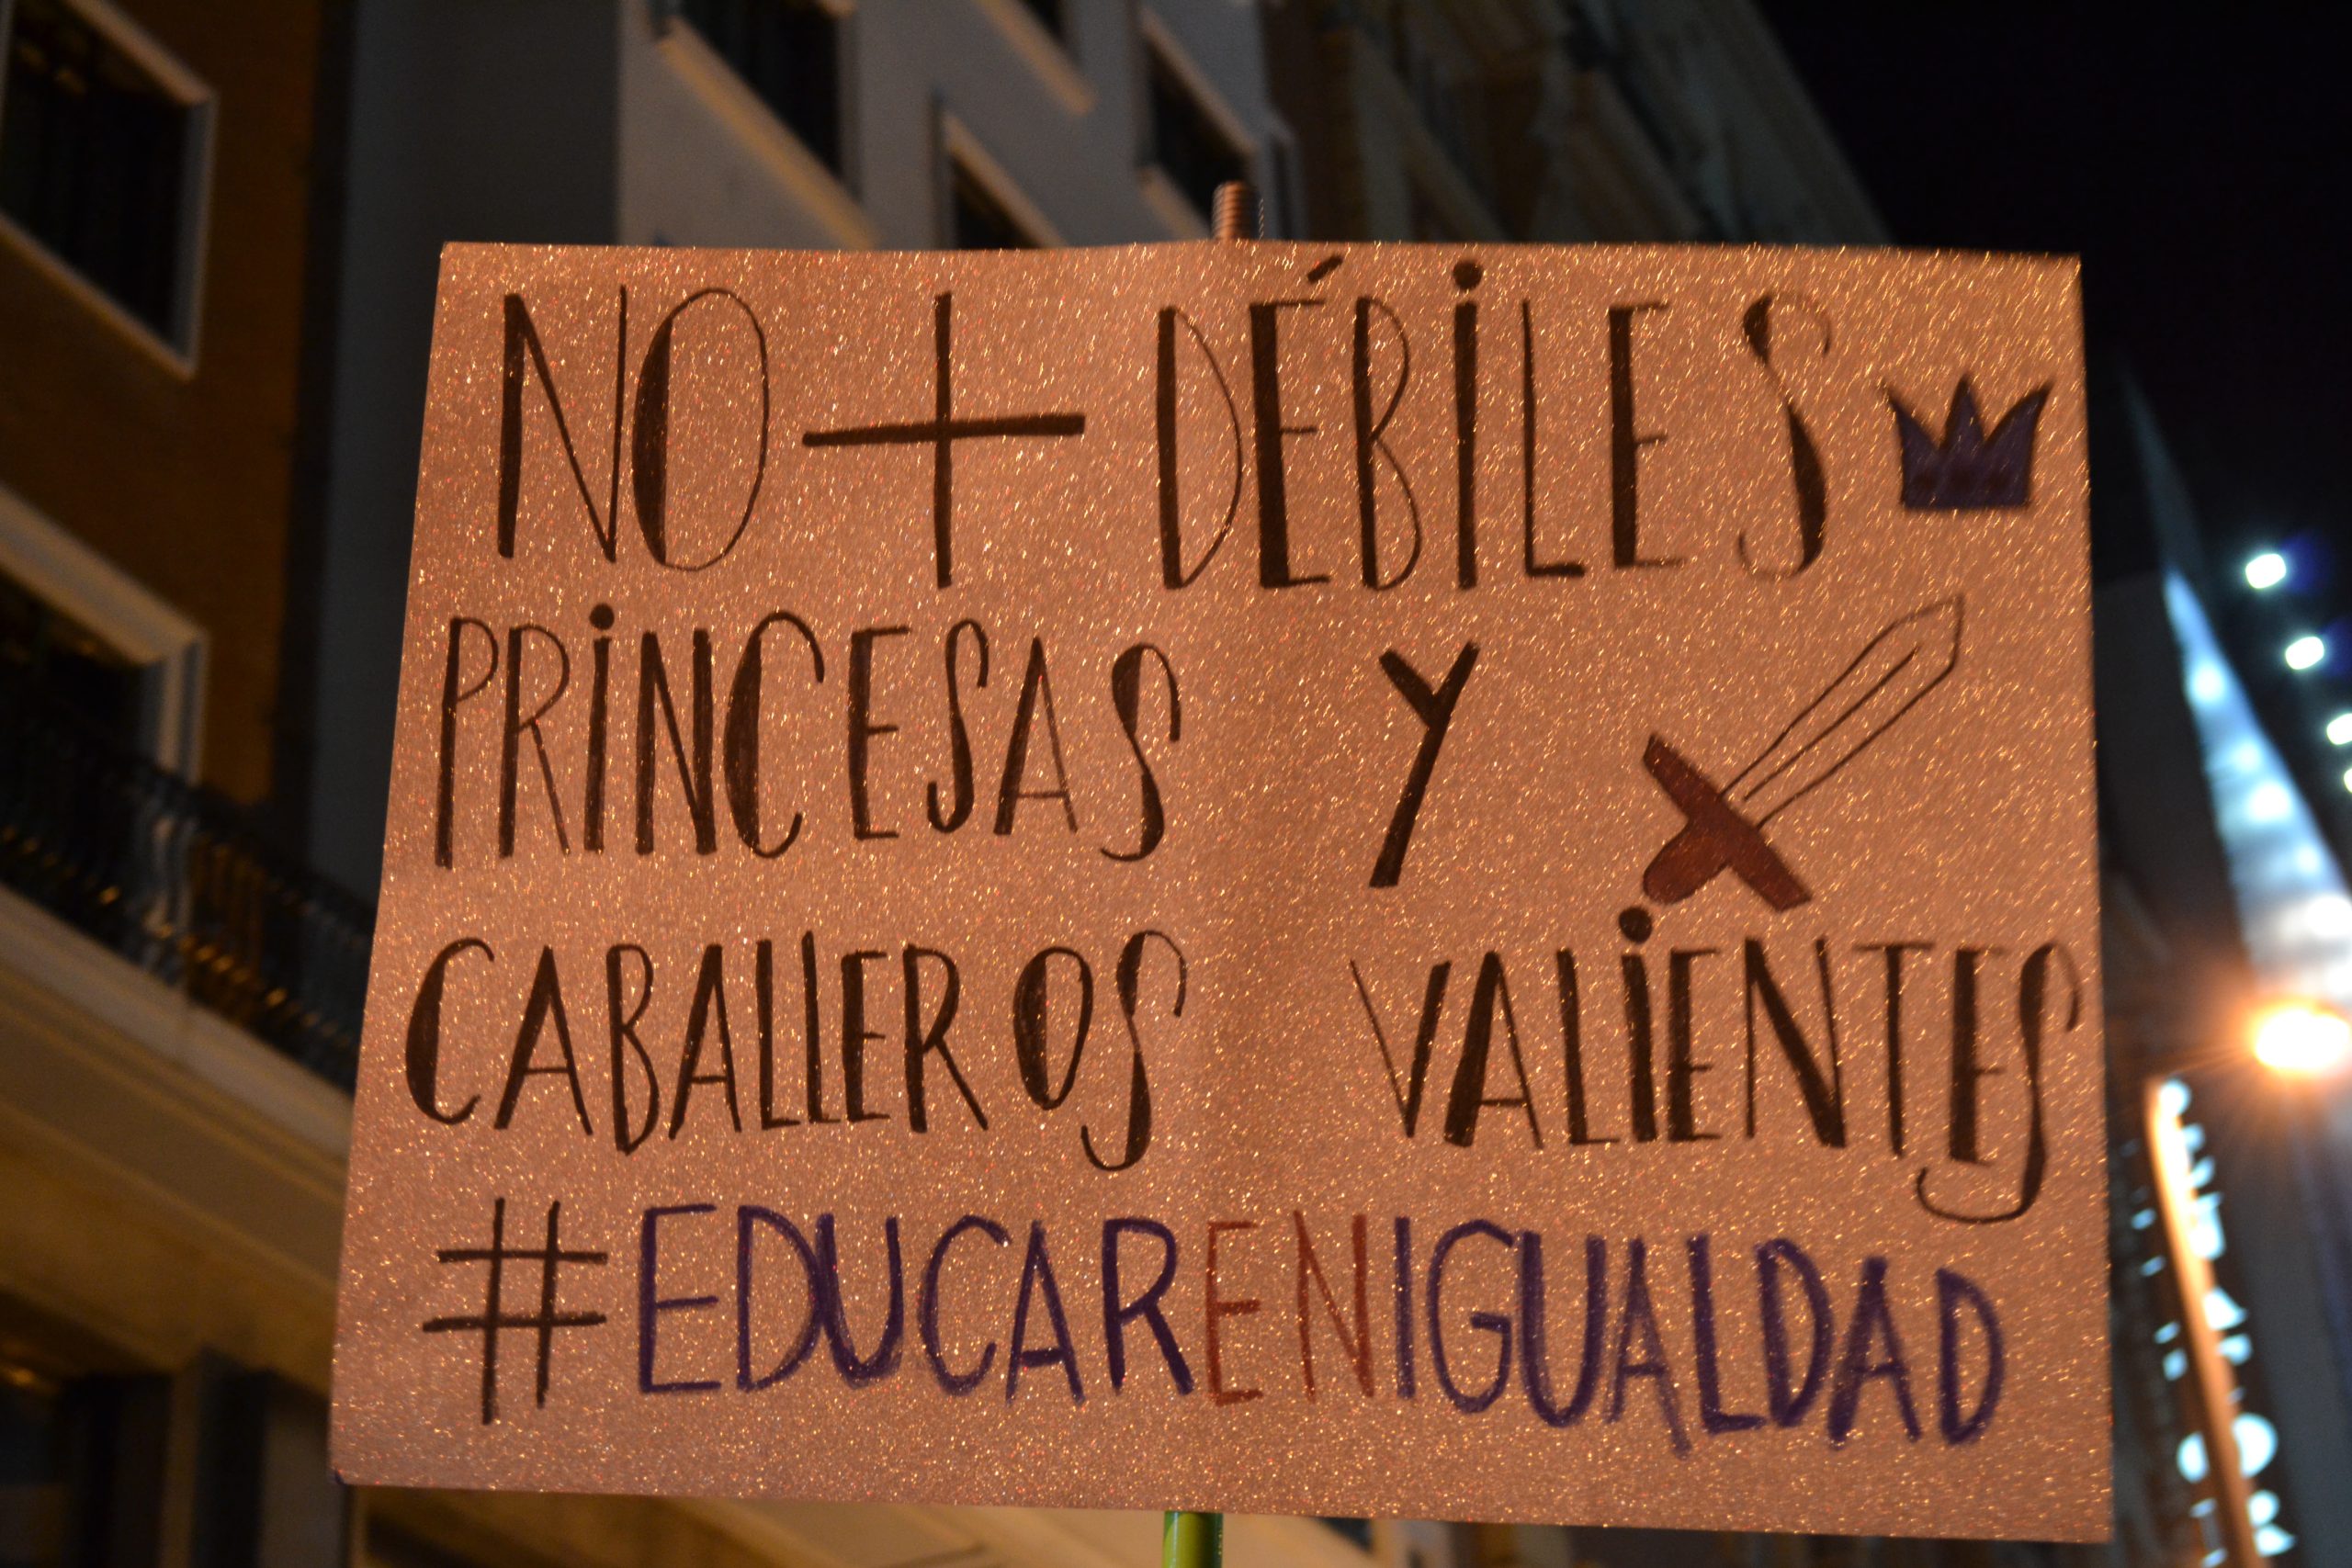 NO + DÉBILES
PRINCESAS Y
CABALLEROS VALIENTES
#EDUCARENIGUALDAD